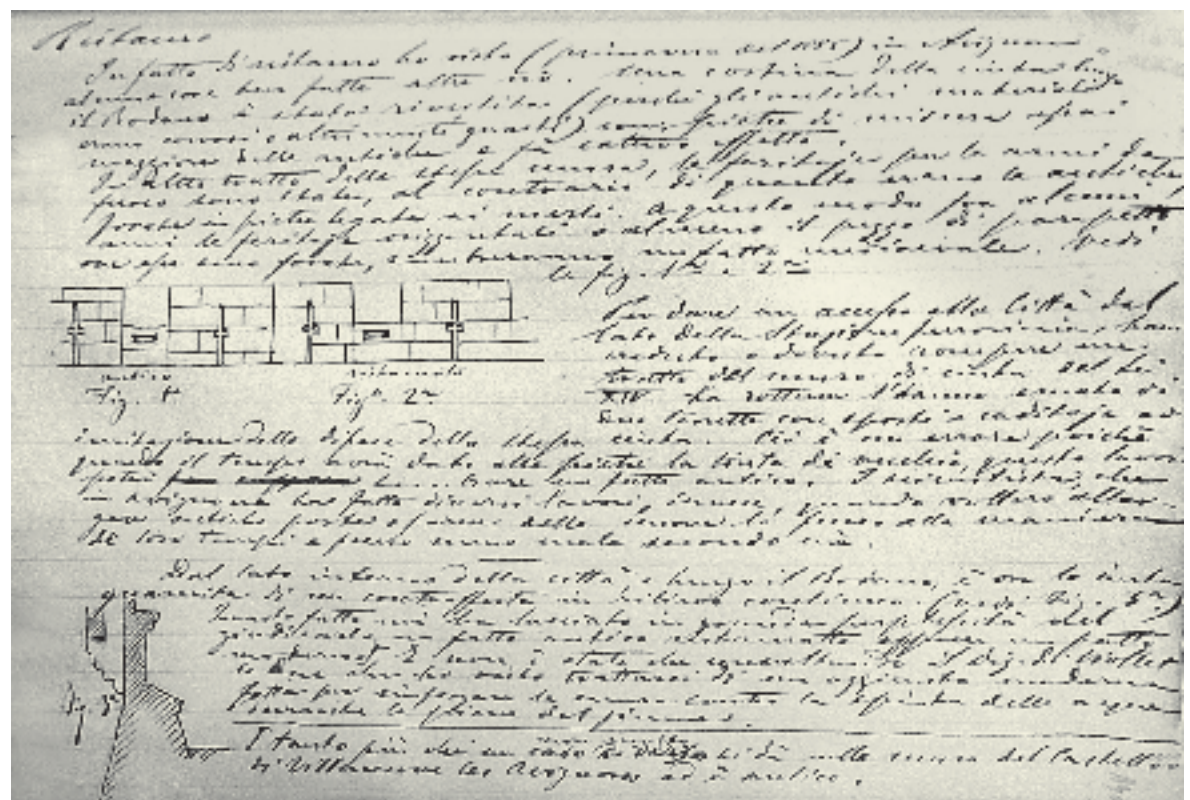 Restauro
In fatto di restauro ho visto (primavera del 1885) in Avignone
alcune cose ben fatte altre no. Una cortina della cinta lungo
il Rodano è stata rivestita (perché gli antichi materiali
erano corrosi e altri molto guasti) con pietre di misura assai
maggiore delle antiche e fa cattivo effetto.
In altro tratto della stessa mura, le feritoie per le armi da
fuoco sono state, al contrario di quanto erano le antiche,
poste in pietre legate ai merli. A questo modo fra alcuni
anni le feritoie o almeno il pezzo di parapetto
ove esse sono poste, sembreranno un fatto medioevale. Vedi
le fig. 1ª e 2ª
antico
restaurato
Fig. 1ª
Figª 2ª
Per dare un accesso alla Città dal
lato della Stazione ferroviaria, han
creduto o dovuto rompere un
tratto del muro di cinta del Sec.
XIV. La rottura l'hanno ornata di
due torrette con sporti a caditoje ad
imitazione delle difese della stessa cinta. Ciò è un errore poiché
quando il tempo avrà dato alle pietre la tinta di vecchio, questo lavoro
potrà parere un fatto antico. I
in Avignone ha fatto diversi lavori, invece, quando vollero
gare antiche porte o farne delle nuove le fecero alla maniera
de loro tempi e fecero meno male secondo me.
Dal lato interno della città e lungo il Rodano, è ora la cinta
guarnita di un contrafforte in continuo. (vedi fig. 3ª)
fatto mi ha lasciato in grandissima perplessità del
giudicarlo un fatto antico restaurato oppure un fatto
moderno. E non è stato che il Sig. di Viollet
le Duc che ho visto trattarsi di un'aggiunta moderna
fatta per rinforzare le mura contro la spinta delle acque
durante le piene del fiume.
Fig. 3ª
E tanto più che un caso si dà nelle mura del Castello
di Villeneuve les Avignon ed è antico.